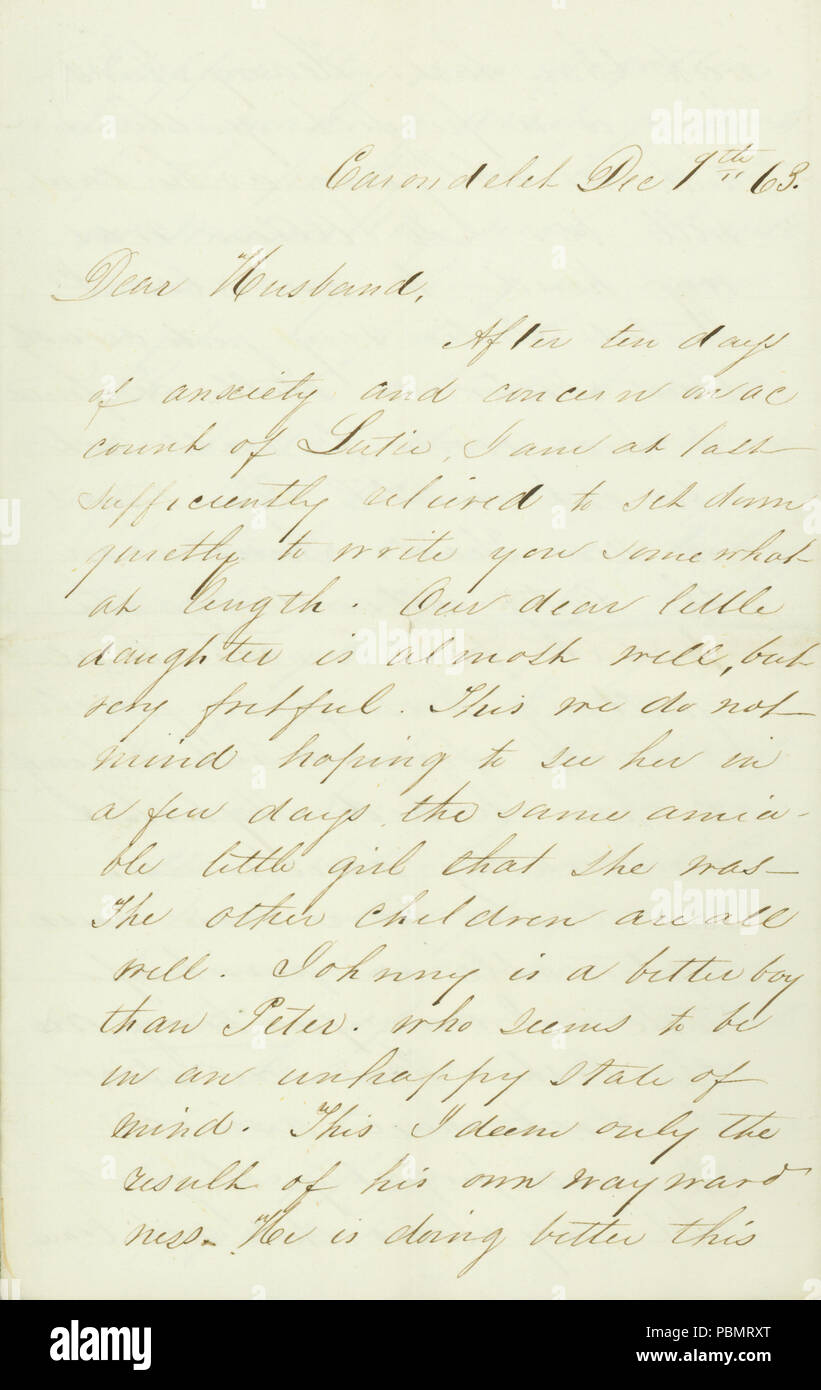 Carondelet Dec 9th 63.
Dear Husband,
After ten days
of anxiety and concern on ac
count of Lutie, I am at last
sufficiently relieved to set down
quietly to write you somewhat
at length. Our dear little
daughter is almost well, but
very fretful. This we do not
mind hoping to see her in
a few days the same amia-
ble little girl that she was—
The other children are all
well. Johnny is a better boy
than Peter. who seems to be
in an unhappy state of
mind. This I deem only the
result of his own wayward
ness. He is doing better this
alamy
Image ID: PBMRXT
www.alamy.com